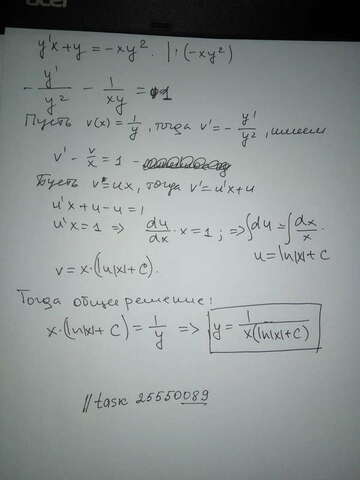 acer
y'x+y=-xy². |:(-xy²)
-y'/y² - 1/xy = 1
Пусть v(x)=1/y, тогда v'=-y'/y², имеем
v'-v/x=1-
Пусть v=ux, тогда v'=u'x+u
u'x+u-u=1
u'x=1 => du/dx·x=1; => ∫du=∫dx/x.
u=ln|x|+C
v=x·(ln|x|+C).
Тогда общее решение:
x·(ln|x|+C)=1/y => y=1/x(ln|x|+C)
//task 25550089